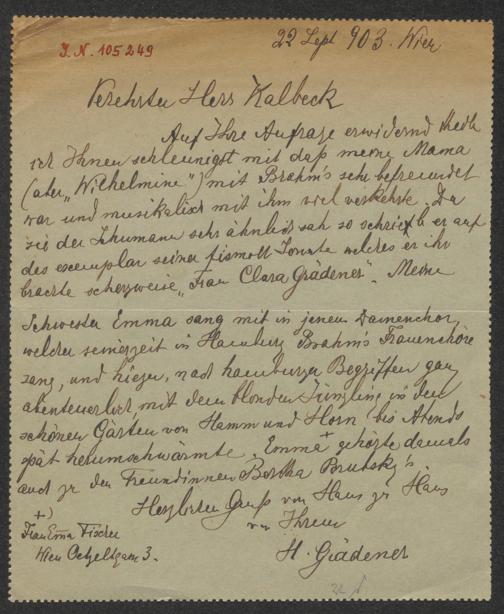 J. N. 105249
22 Sept 903. Wien
Verehrter Herr Kalbeck
Auf Ihre Anfrage erwidernd theile
ich Ihnen schleunigst mit daß meine Mama
(aber „Wilhelmine“) mit Brahms sehr befreundet
war und musikalisch mit ihm viel verkehrte. Da
sie der Schumann sehr ähnlich sah so schrieb er auf
das exemplar seiner fismoll Sonate welches er ihr
brachte scherzweise „Frau Clara Grädener“. Meine
Schwester Emma sang mit in jenem Damenchor,
welcher seinerzeit in Hamburg Brahm's Frauenchöre
sang, und hiezu, nach hamburger Begriffen ganz
abenteuerlich, mit dem blonden Jüngling in den
schönen Gärten von Hamm und Horn bis Abends
spät herumschwärmte. Emma + gehörte damals
auch zu den Freundinnen Bertha
Herzlichen Gruß von Haus zu Haus
von Ihrem
H. Grädener
+)
Frau Emma Fischer
Wien 3.